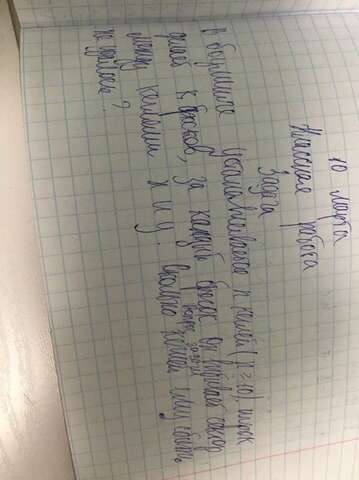 10 марта
Классная работа
Задача
В боулинге устанавливается n кеглей (n ≥ 10), игрок
делает k бросков, за каждый бросок он выбивает сектор
между кеглями x и y. Сколько кеглей ему сбить
не удалось?